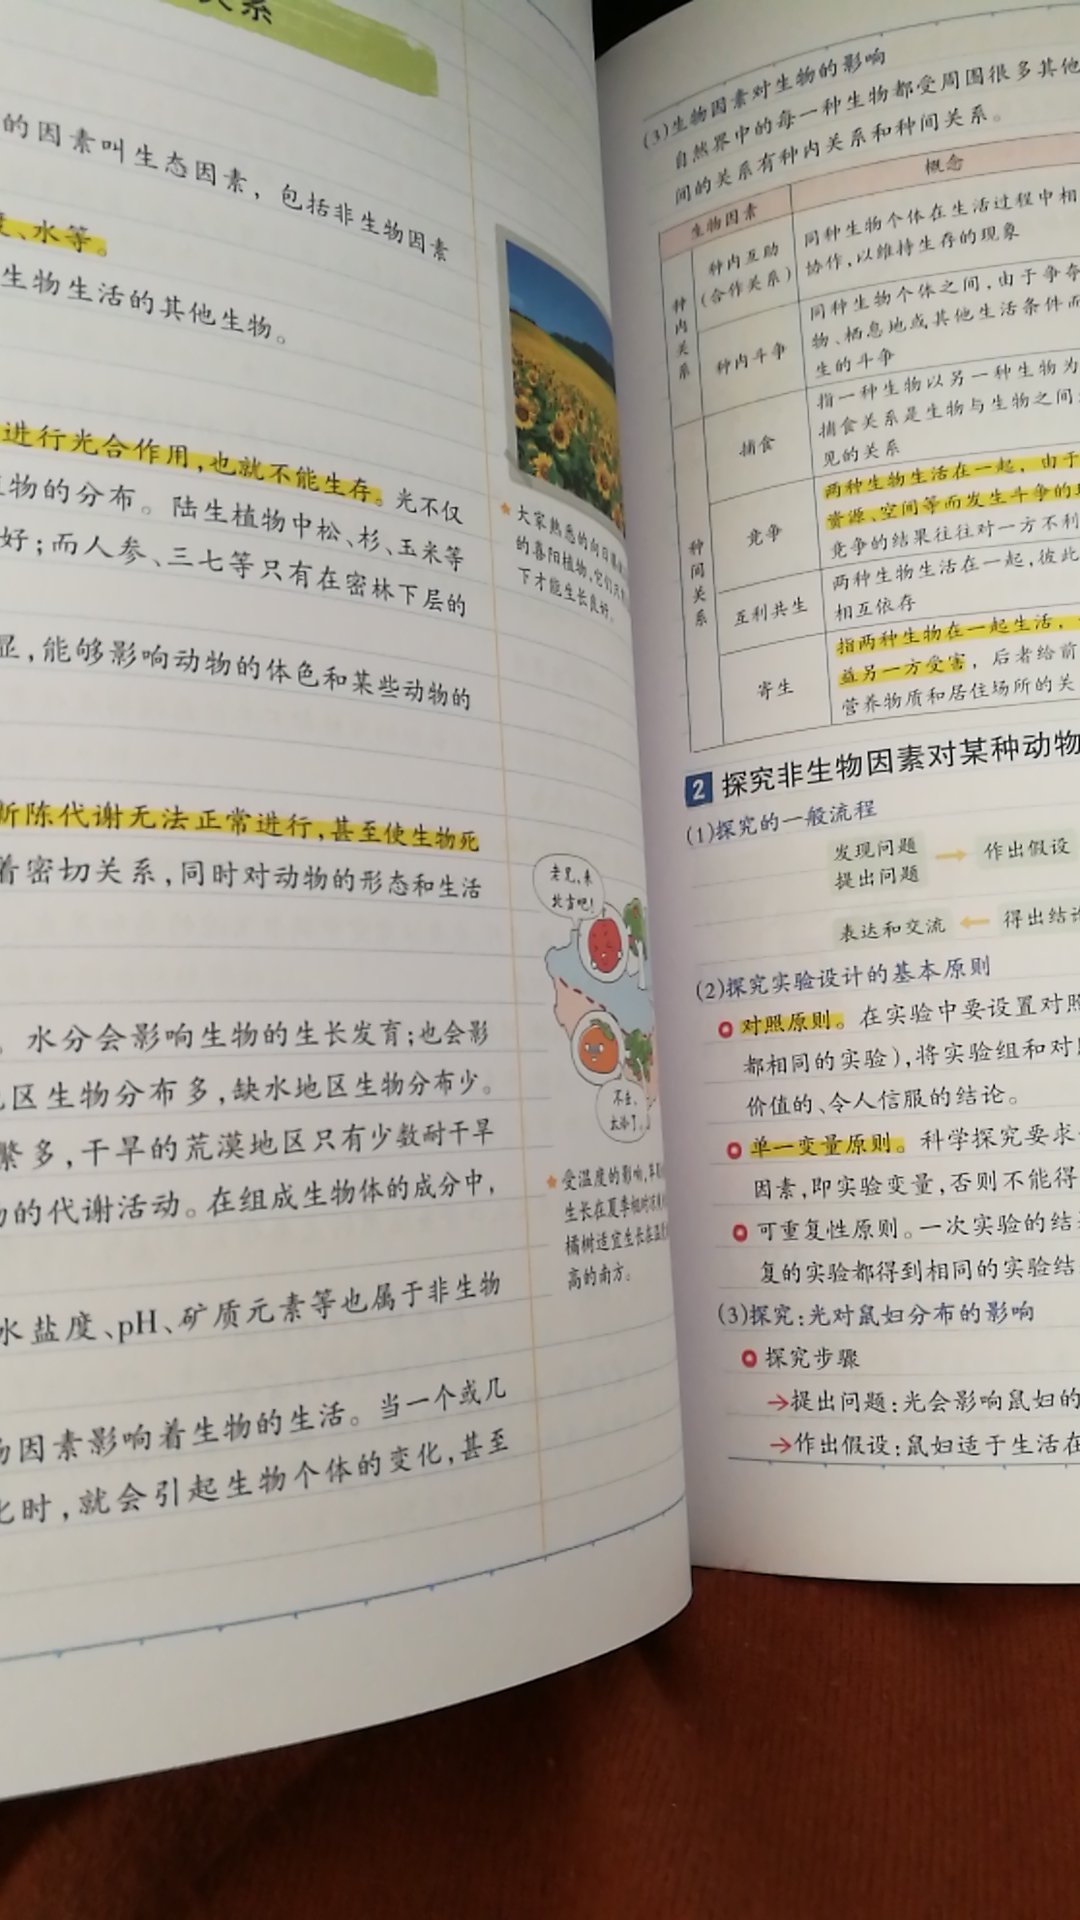 关系
的因素叫生态因素，包括非生物因素
度、水等。
生物生活的其他生物。
进行光合作用，也就不能生存。光不仅
植物的分布。陆生植物中松、杉、玉米等
好；而人参、三七等只有在密林下层的
显，能够影响动物的体色和某些动物的
新陈代谢无法正常进行，甚至使生物死
着密切关系，同时对动物的形态和生活
。水分会影响生物的生长发育；也会影
地区生物分布多，缺水地区生物分布少。
繁多，干旱的荒漠地区只有少数耐干旱
物的代谢活动。在组成生物体的成分中，
水盐度、pH、矿质元素等也属于非生物
因素影响着生物的生活。当一个或几
化时，就会引起生物个体的变化，甚至
大家熟悉的向日葵
的喜阳植物，它们
下才能生长良好。
老兄，来
北方吧！
不去，
太冷了。
受温度的影响，苹
生长在夏季相对
橘树适宜生长在温
高的南方。
(3)生物因素对生物的影响
自然界中的每一种生物都受周围很多其他
间的关系有种内关系和种间关系。
生物因素
概念
种内关系
种内互助
(合作关系)
同种生物个体在生活过程中相
协作，以维持生存的现象
种内斗争
同种生物个体之间，由于争夺
物、栖息地或其他生活条件而
生的斗争
种间关系
捕食
指一种生物以另一种生物为
捕食关系是生物与生物之间
见的关系
竞争
两种生物生活在一起，由于
资源、空间等而发生斗争的
竞争的结果往往对一方不利
互利共生
两种生物生活在一起，彼此
相互依存
寄生
指两种生物在一起生活，
益另一方受害，后者给前
营养物质和居住场所的关
2 探究非生物因素对某种动物
(1)探究的一般流程
发现问题
提出问题
作出假设
表达和交流
得出结论
(2)探究实验设计的基本原则
对照原则。在实验中要设置对照
都相同的实验)，将实验组和对照
价值的、令人信服的结论。
单一变量原则。科学探究要求
因素，即实验变量，否则不能得
可重复性原则。一次实验的结
复的实验都得到相同的实验结
(3)探究：光对鼠妇分布的影响
探究步骤
→提出问题：光会影响鼠妇的
→作出假设：鼠妇适于生活在